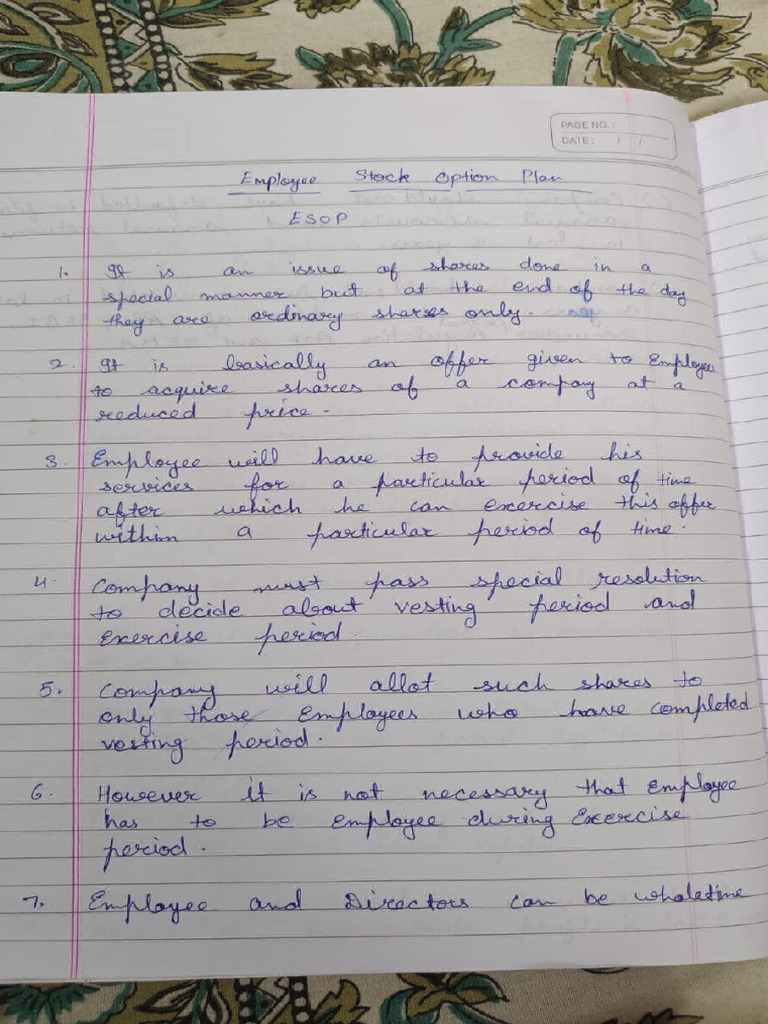 PAGE NO.:
DATE: / /
Employee Stock Option Plan
ESOP
1. It is an issue of shares done in a
special manner but at the end of the day
they are ordinary shares only.
2. It is basically an offer given to Employees
to acquire shares of a company at a
reduced price.
3. Employee will have to provide his
services for a particular period of time
after which he can exercise this offer
within a particular period of time.
4. Company must pass special resolution
to decide about vesting period and
Exercise period.
5. Company will allot such shares to
only those Employees who have completed
vesting period.
6. However it is not necessary that Employee
has to be Employee during Exercise
period.
7. Employee and Directors can be wholetime